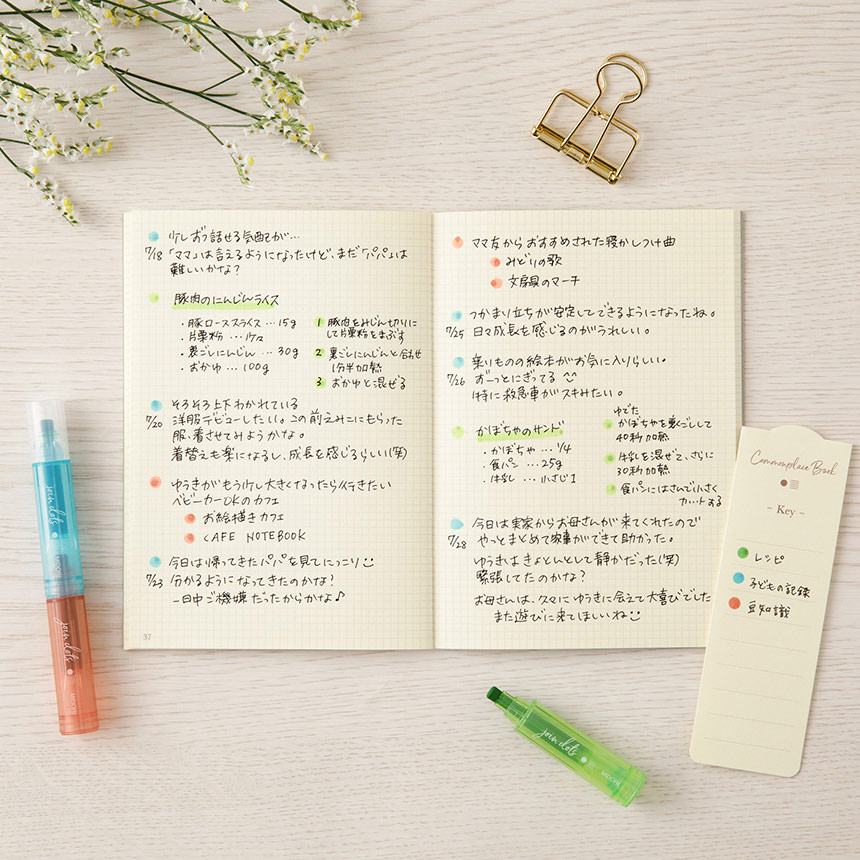 少しずつ話せる気配が…
7/18 「ママ」は言えるようになったけど、まだ「パパ」は
難しいかな?
豚肉のにんじんライス
・豚ローススライス…15g
・片栗粉…少々
・裏ごしにんじん…30g
・おかゆ…100g
1 豚肉をみじん切りに
して片栗粉をまぶす
2 裏ごしにんじんと合わせ
1分半加熱
3 おかゆと混ぜる
そろそろ上下わかれている
7/20 洋服デビューしたい。この前えみこにもらった
服、着させてみようかな。
着替えも楽になるし、成長を感じるらしい(笑)
ゆうきがもう少し大きくなったら行きたい
ベビーカーOKのカフェ
お絵描きカフェ
CAFE NOTEBOOK
今日は帰ってきたパパを見てにっこり
7/23 分かるようになってきたのかな!
一日中ご機嫌だったからかな♪
37
ママ友からおすすめされた寝かしつけ曲
みどりの歌
文房具のマーチ
つかまり立ちが安定してできるようになったね。
7/25 日々成長を感じるのがうれしい。
乗りものの絵本がお気に入りらしい。
7/26 ずーっとにぎってる^^
特に救急車がスキみたい。
かぼちゃのサンド
・かぼちゃ…1/4
・食パン…25g
・牛乳…小さじ1
ゆでた
かぼちゃを裏ごしして
40秒加熱
牛乳を混ぜて、さらに
30秒加熱
食パンにはさんで小さく
カットする
今日は実家からお母さんが来てくれたので
7/28 やっとまとめて家事ができて助かった。
ゆうきはきょとんとして静かだった(笑)
緊張してたのかな?
お母さんは、久々にゆうきに会えて大喜びでした
また遊びに来てほしいね
Commonplace Book
- Key -
レシピ
子どもの記録
豆知識
join dots
join dots
MIDORI
join dots
MIDORI